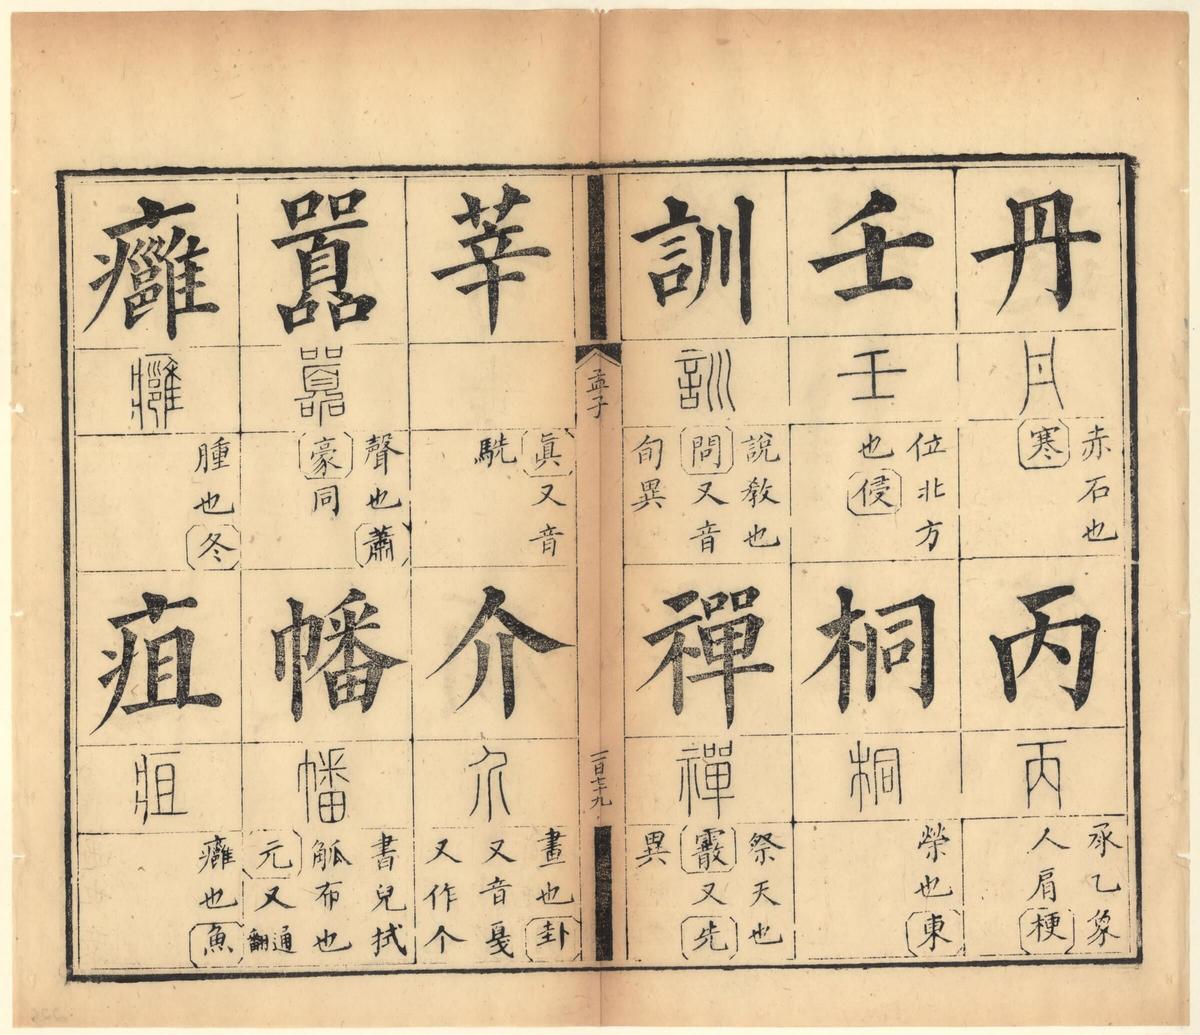 丹
丹
赤石也
寒
丙
丙
承乙象
人肩
梗
壬
壬
位北方
也
侵
桐
桐
榮也
東
訓
訓
說教也
問
又音
旬異
禪
禪
祭天也
霰
又
先
異
孟子
一百七十九
莘
眞
又音
駪
介
介
畫也
卦
又音戛
又作个
嚚
嚚
聲也
蕭
豪
同
幡
幡
書兒拭
觚布也
元
又
通翻
癰
癰
腫也
冬
疽
疽
癰也
魚